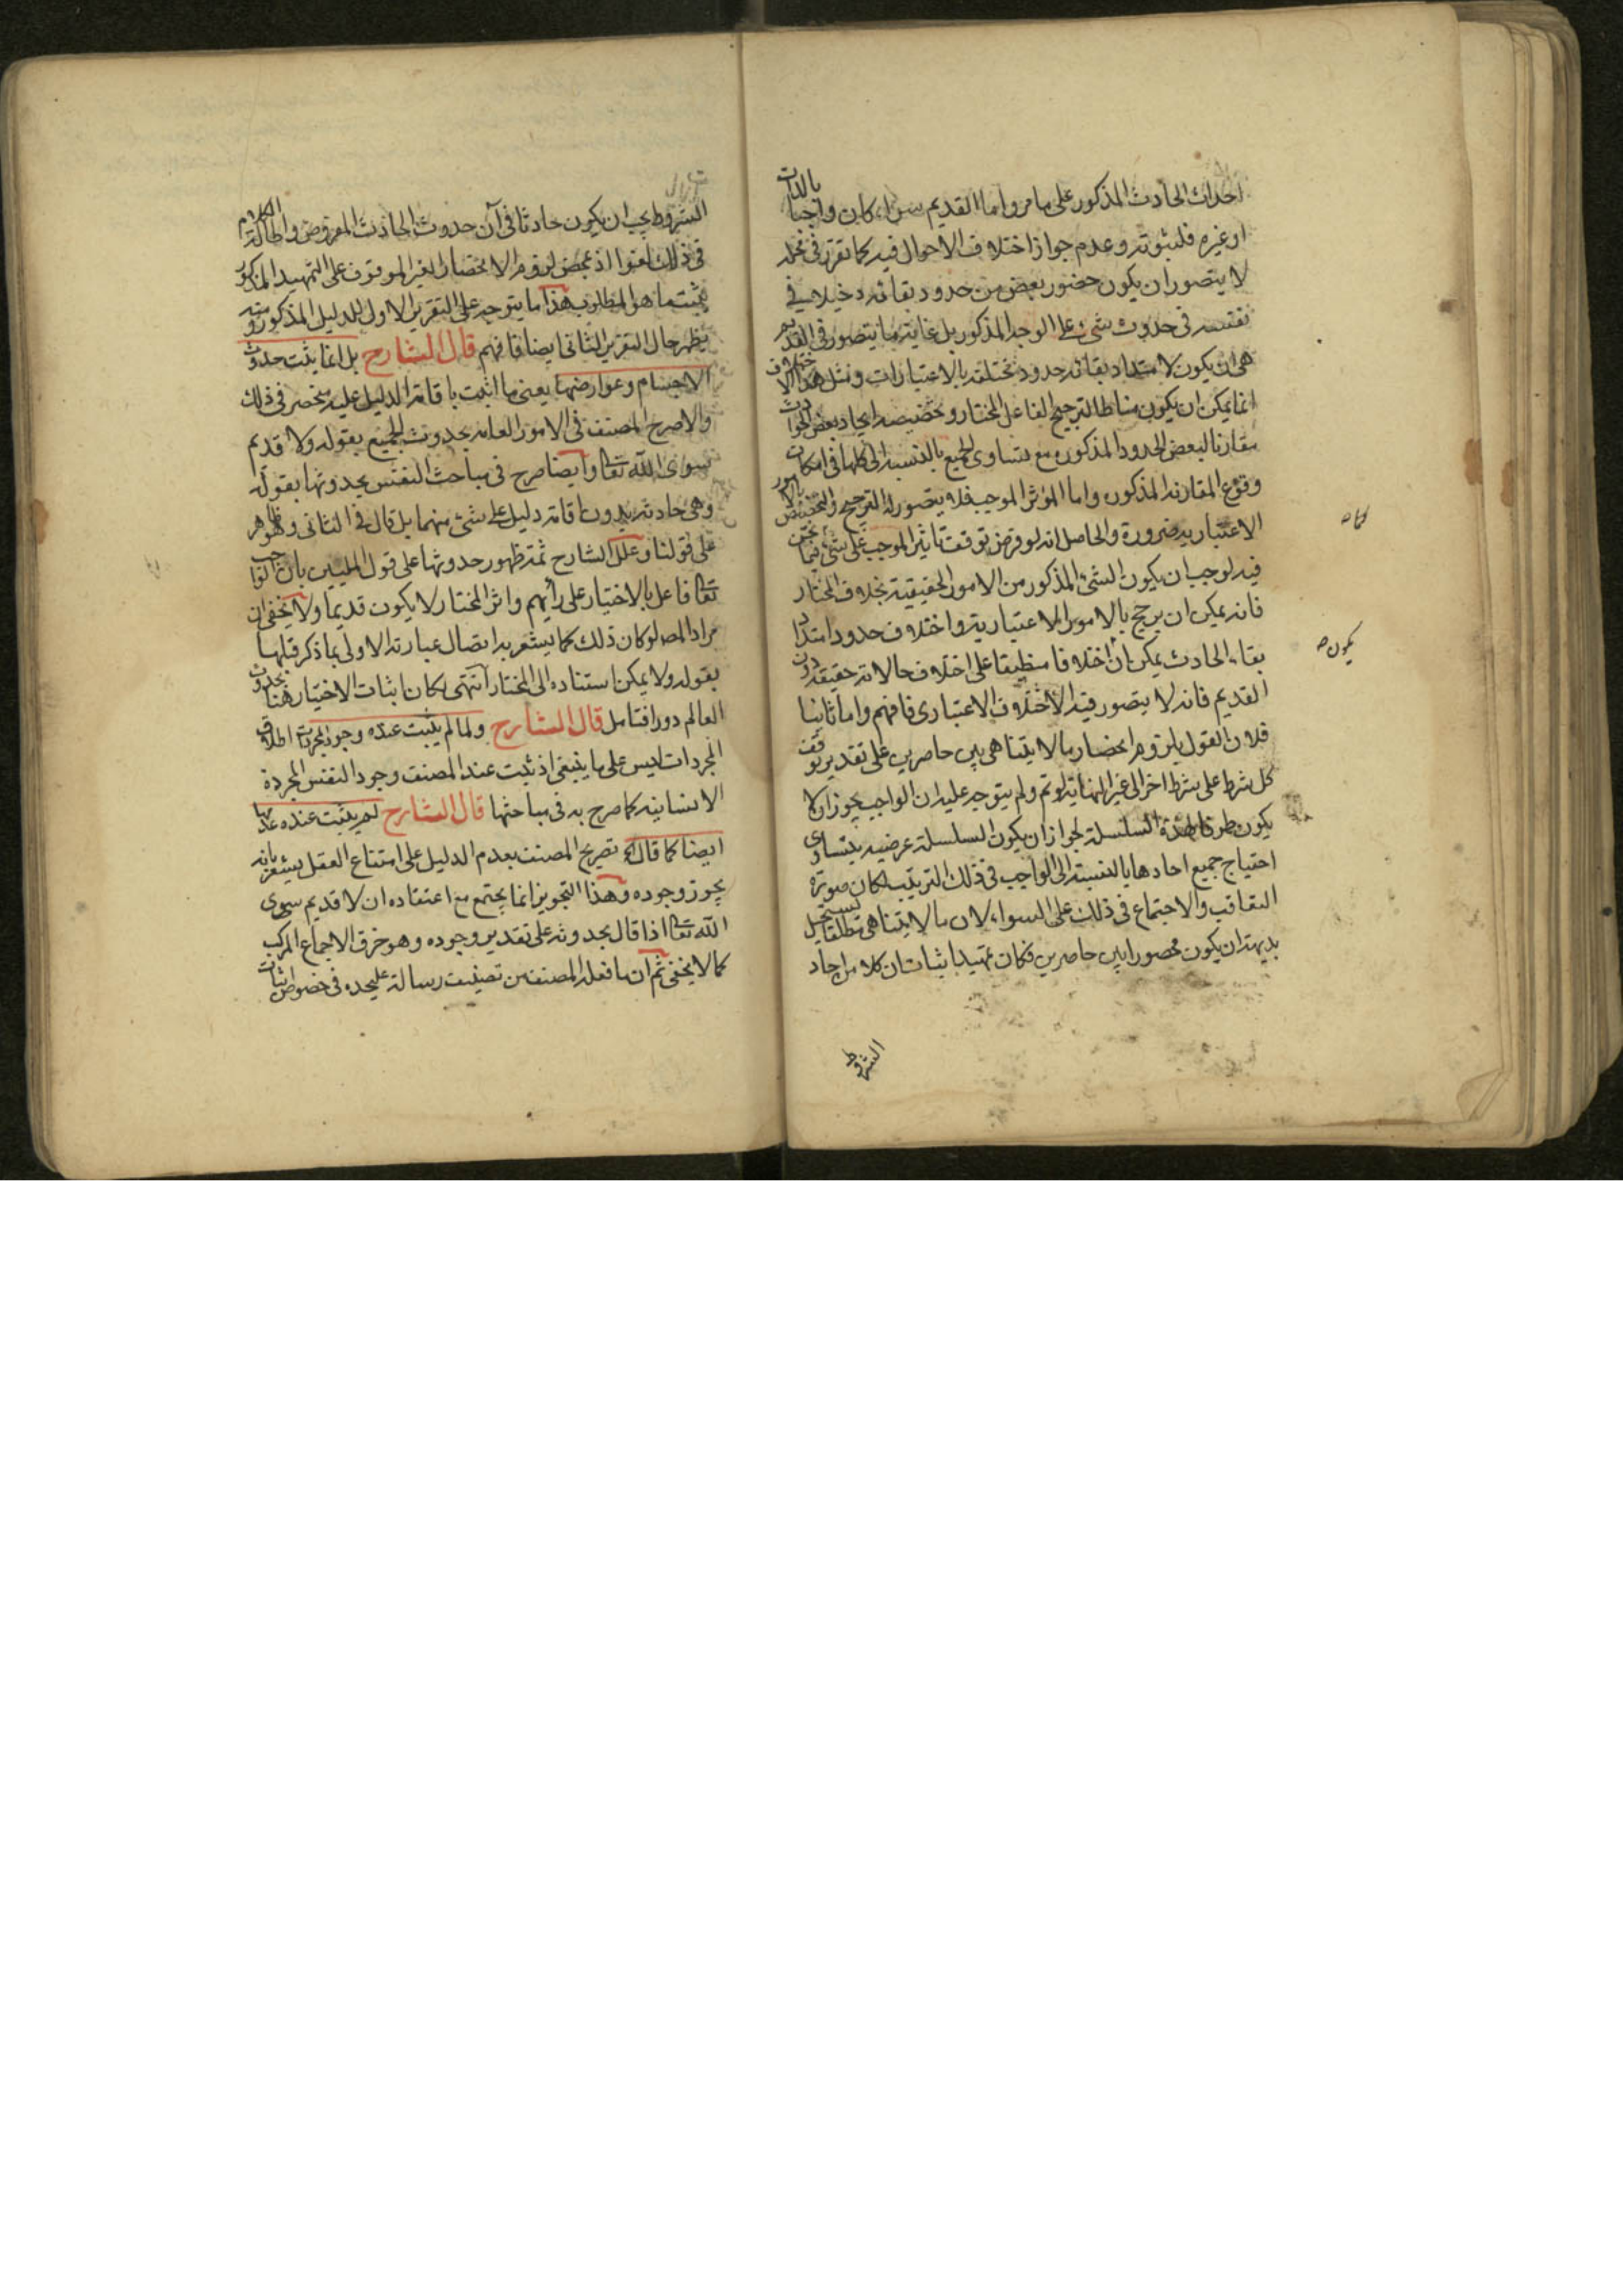 احداث الحادث المذكور على ما مر واما القديم سواء كان واجبا بالذات
او غيره فلثبوته وعدم جواز اختلاف الاحوال فيه كما تقرر فى محله
لا يتصور ان يكون حضور بعض من حدود بقائه دخيلا فى
نفسه فى حدوث شىء على الوجه المذكور بل غاية ما يتصور فى القديم
هى ان يكون لامتداد بقائه حدود مختلفة بالاعتبارات ومثل هذا الاختلاف
انما يمكن ان يكون مناطا لترجيح الفاعل المختار وتخصيصه ايجاد بعض الحوادث
مقارنا لبعض الحدود المذكوره مع تساوى الجميع بالنسبه الى كلها فى امكان
وقوع المقارنه المذكوره واما المؤثر الموجب فلا يتصور له الترجيح والتخصيص بالامور
الاعتباريه ضرورة والحاصل انه لو فرض توقف تاثير الموجب على شىء فيما نحن
فيه لوجب ان يكون الشىء المذكور من الامور الحقيقية بخلاف المختار
فانه يمكن ان يرجح بالامور الاعتبارية واختلاف حدود امتداد
بقاء الحادث يمكن ان اختلافا منطبقا على اختلاف حالاته حقيقة دون
القديم فانه لا يتصور فيه الاختلاف الاعتبارى فافهم واما ثانيا
فلان القول بلزوم انحصار ما لا يتناهى بين حاصرين على تقدير توقف
كل شرط على شرط اخر الى غير النهاية لو تم ولم يتوجه عليه ان الواجب يجوز ان لا
يكون طرفا لهذة السلسلة لجواز ان يكون السلسلة عرضيه يتساوى
احتياج جميع احادها بالنسبة الى الواجب فى ذلك الترتيب لكان صورتا
التعاقب والاجتماع فى ذلك على السواء لان ما لا يتناهى مطلقا يستحيل
بديهة ان يكون محصورا بين حاصرين فكان تمهيد اثبات ان كلا من احاد
الشروط
يكون ص
الشروط يجب ان يكون حادثا فى آن حدوث الحادث المفروض واطالة الكلام
فى ذلك لغوا اذ بمحض لزوم الانحصار الغير الموقوف على التمهيد المذكور
يثبت ما هو المطلوب هذا ما يتوجه على التقرير الاول للدليل المذكور ومنه
يظهر حال التقرير الثانى ايضا فافهم قال الشارح بل انما يثبت حدوث
الاجسام وعوارضها يعنى ما اثبت باقامة الدليل عليه منحصر فى ذلك
والا صرح المصنف فى الامور العامه بحدوث الجميع بقوله ولا قديم
سوى الله تعالى وايضا صرح فى مباحث النفس بحدوثها بقوله
وهى حادثه بدون اقامة دليل على شىء منهما بل قال فى الثانى وهو ظاهر
على قولنا وعلل الشارح ثمة ظهور حدوثها على قول المليين بان الواجب
تعالى فاعل بالاختيار على رأيهم واثر المختار لا يكون قديما ولا يخفى ان
مراد المصـ لو كان ذلك كما يشعر به اتصال عبارته الاولى بما ذكر قبلها
بقوله ولا يمكن استناده الى المختار انتهى لكان اثبات الاختيار هنا بحدوث
العالم دورا فتامل قال الشارح ولما لم يثبت عنده وجود المجردات اطلاق
المجردات ليس على ما ينبغى اذ يثبت عند المصنف وجود النفس المجردة
الانسانيه كما صرح به فى مباحثها قال الشارح لم يثبت عنده عدمها
ايضا كما قال الخ تصريح المصنف بعدم الدليل على امتناع العقل يشعر بانه
يجوز وجوده وهذا التجويز انما يجتمع مع اعتقاده ان لا قديم سوى
الله تعالى اذا قال بحدوثه على تقدير وجوده وهو خرق الاجماع المركب
كما لا يخفى ثم ان ما فعله المصنف من تصنيف رسالة عليحده فى خصوص اثبات